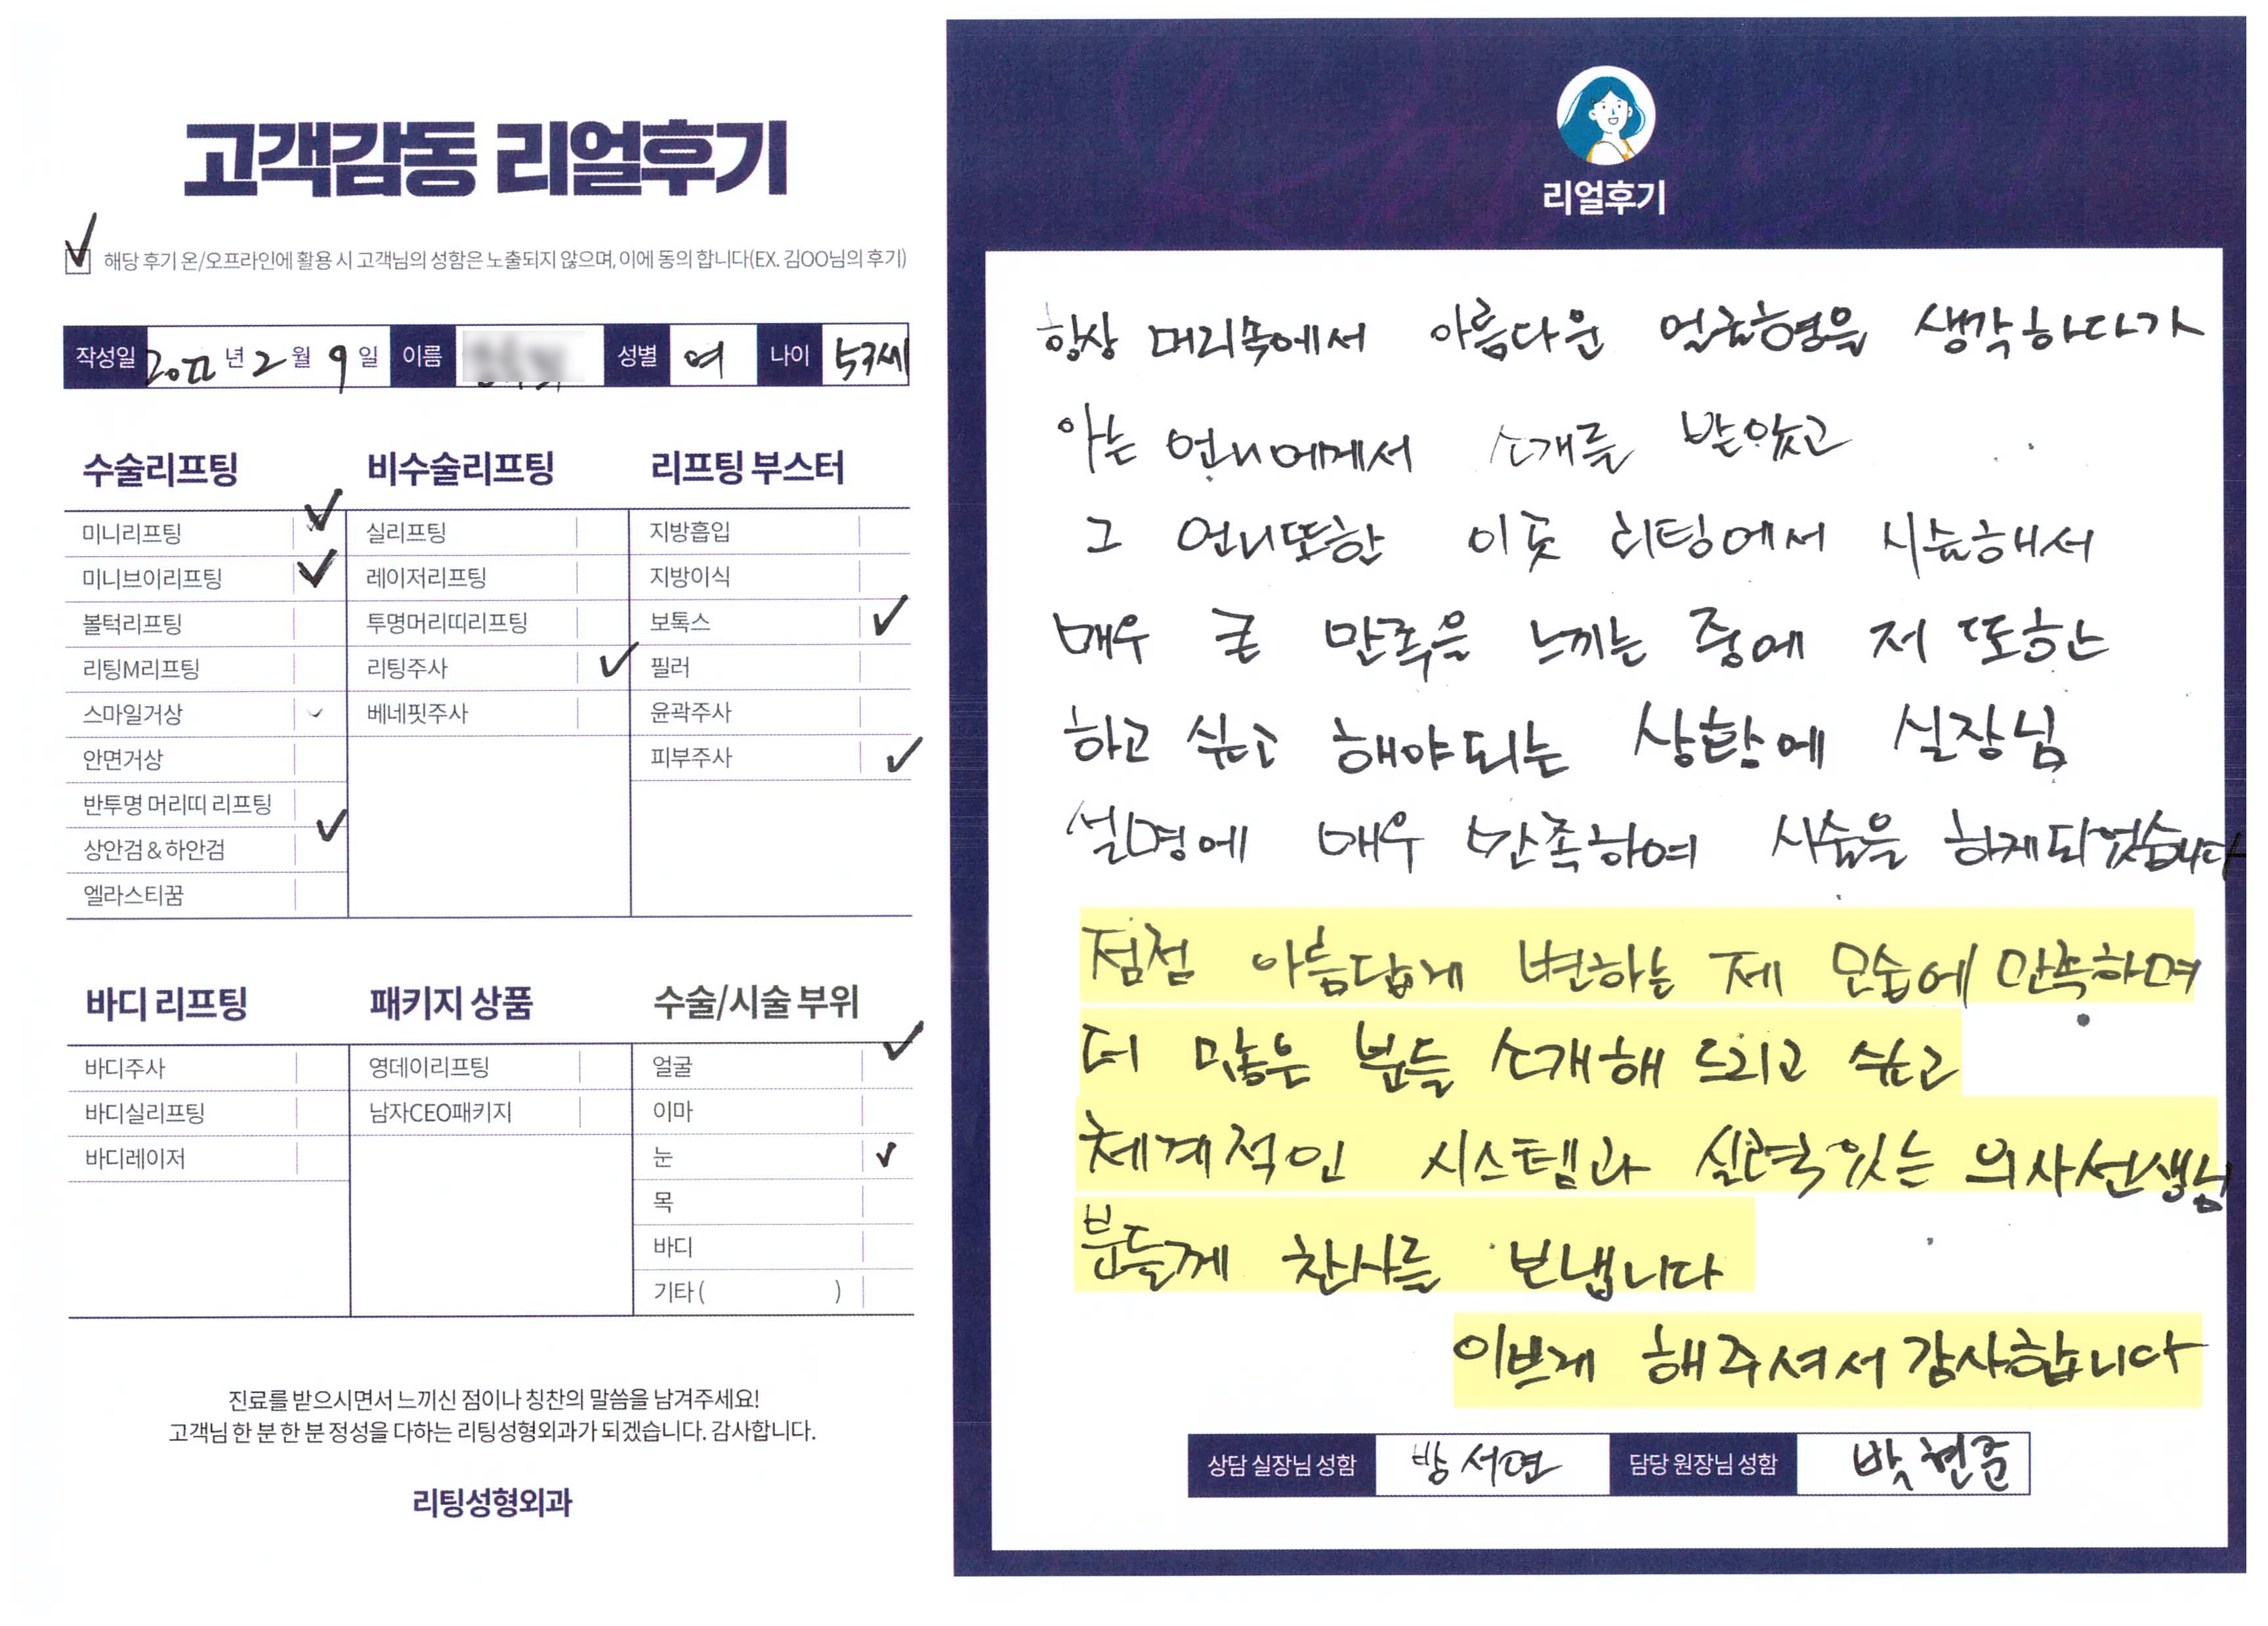 고객감동 리얼후기
해당 후기 온/오프라인에 활용 시 고객님의 성함은 노출되지 않으며, 이에 동의 합니다(EX. 김OO님의 후기)
작성일 2022 년 2 월 9 일 이름 성별 여 나이 53세
수술리프팅 비수술리프팅 리프팅 부스터
미니리프팅 실리프팅 지방흡입
미니브이리프팅 레이저리프팅 지방이식
볼턱리프팅 투명머리띠리프팅 보톡스
리팅M리프팅 리팅주사 필러
스마일거상 베네핏주사 윤곽주사
안면거상 피부주사
반투명 머리띠 리프팅
상안검 & 하안검
엘라스티꿈
바디 리프팅 패키지 상품 수술/시술 부위
바디주사 영데이리프팅 얼굴
바디실리프팅 남자CEO패키지 이마
바디레이저 눈
목
바디
기타 ( )
진료를 받으시면서 느끼신 점이나 칭찬의 말씀을 남겨주세요!
고객님 한 분 한 분 정성을 다하는 리팅성형외과가 되겠습니다. 감사합니다.
리팅성형외과
리얼후기
항상 머리속에서 아름다운 얼굴형을 생각하다가
아는 언니에게서 소개를 받았고
그 언니또한 이곳 리팅에서 시술해서
매우 큰 만족을 느끼는 중에 저 또한
하고 싶고 해야되는 상황에 실장님
설명에 매우 만족하여 시술을 하게되었습니다
점점 아름답게 변하는 제 모습에 만족하며
더 많은 분들 소개해 드리고 싶고
체계적인 시스템과 실력있는 의사선생님
분들께 찬사를 보냅니다
이쁘게 해주셔서 감사합니다
상담 실장님 성함 방서연 담당 원장님 성함 박현준